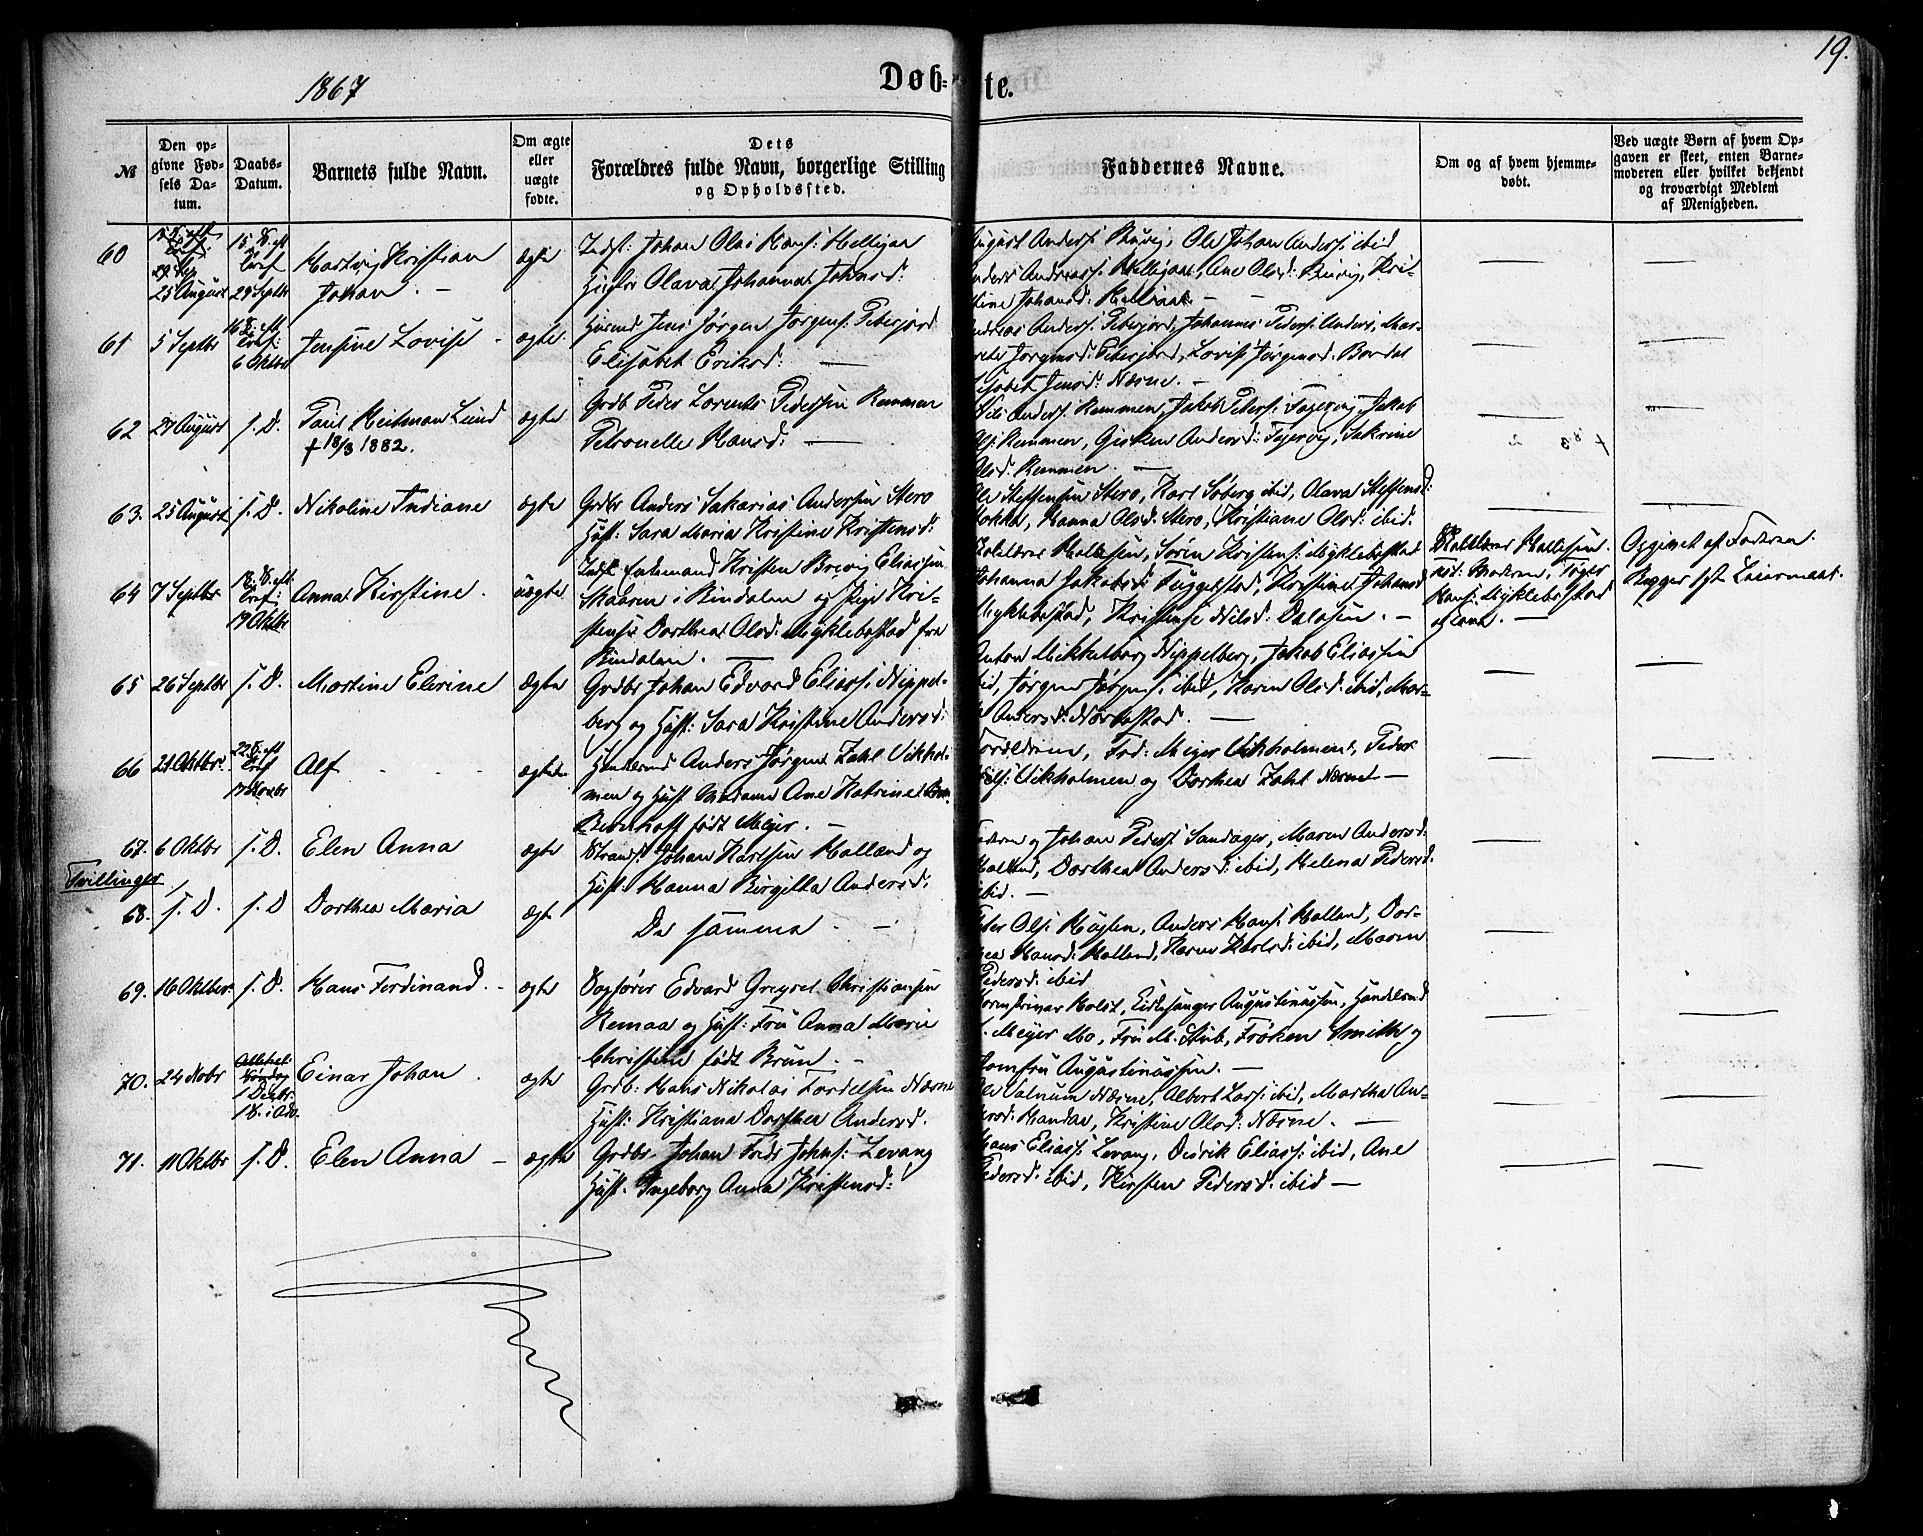 19.
1867
Døb-te.
№
Den op-
givne Fød-
sels Da-
tum.
Daabs-
Datum.
Barnets fulde Navn.
Om ægte
eller
uægte
fødte.
Dets
Forældres fulde Navn, borgerlige Stilling
og Opholdssted.
Faddernes Navne.
Om og af hvem hjemme-
døbt.
Ved uægte Børn af hvem Op-
gaven er skeet, enten Barne-
moderen eller hvilket bekjendt
og troværdigt Medlem
af Menigheden.
60
25 August
29 Septbr
Hartvig Kristian
Johan. -
ægte
Indst: Johan Olai Hans: Helligaa
Hustr Olava Johanna Johnsd:
August Anders: Buvig, Ole Johan Anders: ibid
Anders Andreass: Helligaa, Ane Olsd: Buvig, Kri-
stine Johansd: Helligaa -
61
5 Septbr
6 Oktbr
Jensine Lovise -
ægte
Huusmd Jens Jørgen Jørgens: Petersjord
Elisabet Eriksd: -
Andreas Anders: Petersjord, Johannes Peders: Anders, Mar-
grete Jørgensd: Petersjord, Lovise Jørgensd. Bordal
Elisabet Jensd: Næsne. -
62
27 August
s. D.
Paul Heitman Lund
† 18/3 1882.
ægte
Grdb Peder Lorents Pedersen Remmen
Petronelle Hansd: -
Nils Anders: Remmen, Jakob Peters: Fagervig, Jakob
Ols: Remmen, Gisken Andersd: Fagervig, Sakrine
Olsd. Remmen. -
63.
25 August
s. D.
Nikoline Indiane
ægte
Grdbr Anders Sakarias Andersen Stero
Hust: Sara Maria Kristine Kristensd:
Ole Steffensen Stero, Karl Søberg ibid, Olava Steffensd:
Hokka, Hanna Olsd. Stero, Kristiane Olsd: ibid.
64
7 Septbr
19 Oktbr
Anna Kirstine.
uægte
Indst Enkemand Kristen Brevig Eliassen
Skaaren i Bindalen og Pige Kri-
stense Dorthea Olsd. Myklebostad fra
Bindalen. -
Kirkelærer Hallesen, Søren Kristens: Myklebostad
Johanna Jakobsd: Fuggelstad, Kirstine Johansd
Myklebostad, Kristense Nilsd: Dalosen. -
Skolelærer Hallesen.
Moderen, Inger
Hans: Myklebostad
og Lene. -
Opgivet af Faderen.
Begges 1ste Leiermaal.
65
26 Septbr
s. D.
Martine Elerine
Ægte
Grdbr Johan Edvard Elias: Nippel-
berg og Hust: Sara Kristine Andersd:
Anton Mikkelborg Nippelberg, Jakob Eliassen
ibid, Jørgen Jørgens: ibid, Karen Olsd: ibid, Mar-
Andersd: Norbostad. -
66
21 Oktbr.
17 Novbr
Alf - - -
ægte
Handelsmd Anders Jørgen Zahl Vikhol-
men og Hust Madame Ane Katrine
Berehoff født Meyer. -
Forældrene, Frd: Meyer Vikholmen, Peder
Nils: Vikholmen og Dorthea Zahl Næsne -
67.
6 Oktbr
s. D.
Elen Anna
ægte
Strands: Johan Karlsen Halland og
Hust: Hanna Birgitta Andersd:
Faderen og Johan Peders: Sandager, Maren Andersd:
Halland, Dorthea Andersd: ibid, Helena Pedersd:
ibid. -
Tvillinger
68.
s. D.
s. D
Dorthea Maria
ægte
De samme. -
Peter Ols: Højten, Anders Hans: Halland, Dor-
thea Hansd: Halland, Karen Karlsd: ibid, Maren
Pedersd: ibid
69.
16 Oktber
s. D.
Hans Ferdinand. -
ægte
Sagfører Edvard Gregrel Christiansen
Remaa og Hust: Fru Anna Marie
Christine født Brun. -
Dorenskriver Holst, Kirkesanger Augustinussen, Handelsmd
Meyer Mo, Fru M. Stub, Frøken Smith og
Jomfru Augustinussen. -
70.
24 Nobr
1 Decbr:
1 S. i Adv.
Einar Johan.
ægte
Grdb: Hans Nikolai Tordelsen Næsne
Hust: Kristiane Dorthea Andersd.
Ole Valnum Næsne, Albert Lars: ibid, Martha An-
dersd: Handaa, Kristine Olsd: Næsne. -
71.
11 Oktbr
s. D.
Elen Anna -
ægte
Grdbr Johan Frdr Johns: Levang
Hust. Ingeborg Anna Kristensd:
Hans Elias: Levang, Didrik Elias: ibid, Ane
Pedersd: ibid, Kirsten Pedersd: ibid -